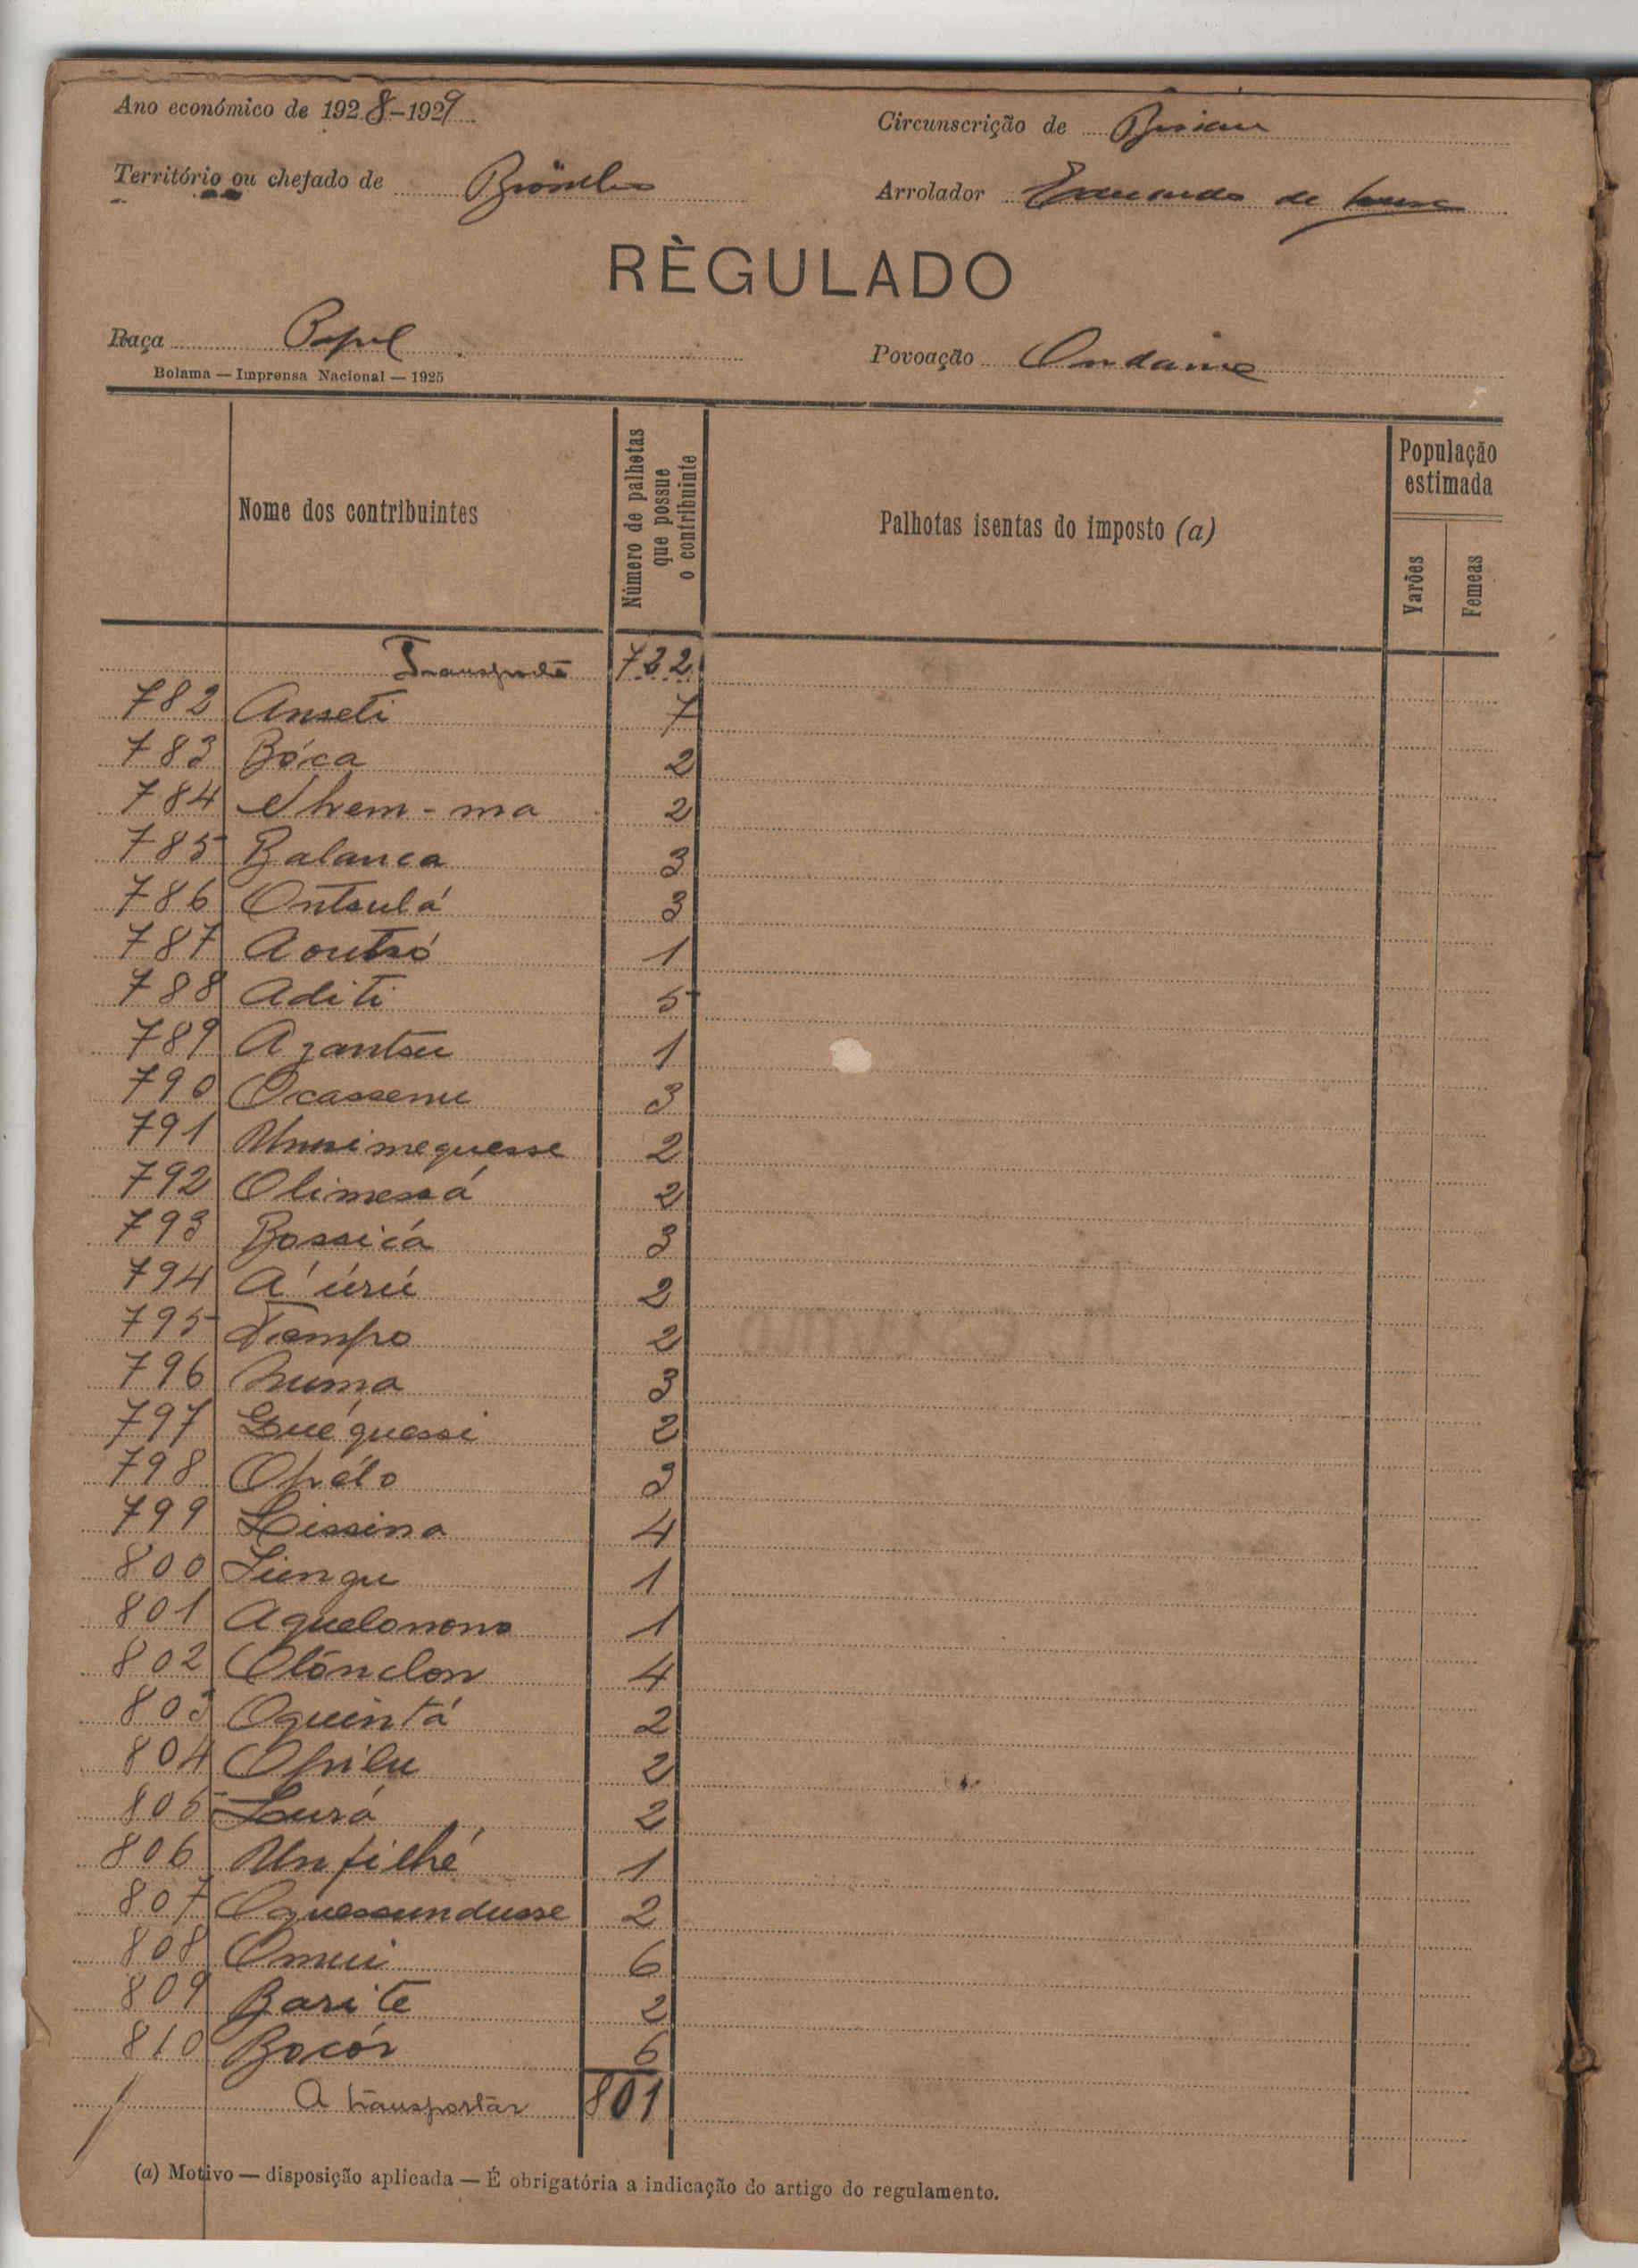 Ano económico de 1928-1929
Circunscrição de
Território ou chefado de
Arrolador de
RÈGULADO
Raça Papel
Povoação Ondame
Bolama — Imprensa Nacional — 1925
Nome dos contribuintes
Número de palhotas que possue o contribuinte
Palhotas isentas do imposto (a)
População estimada
Varões
Femeas
Transporte 732
782 Anseti 7
783 Bóca 2
784 Nhem-ma 2
785 Balanca 3
786 Ontsulá 3
787 Aoutró 1
788 Aditi 5
789 Azantsu 1
790 Ocassenu 3
791 2
792 Olimessá 2
793 Bossicá 3
794 A'úrú 2
795 Tempo 2
796 Numa 3
797 Guéquessi 2
798 Opélo 3
799 Lissina 4
800 Liengu 1
801 Aquelonono 1
802 Olónclon 4
803 Oquintá 2
804 Opilu 2
805 Lurá 2
806 Unfilhé 1
807 Oquessundusse 2
808 Omui 6
809 Barite 2
810 Bocór 6
A transportar 801
(a) Motivo — disposição aplicada — É obrigatória a indicação do artigo do regulamento.